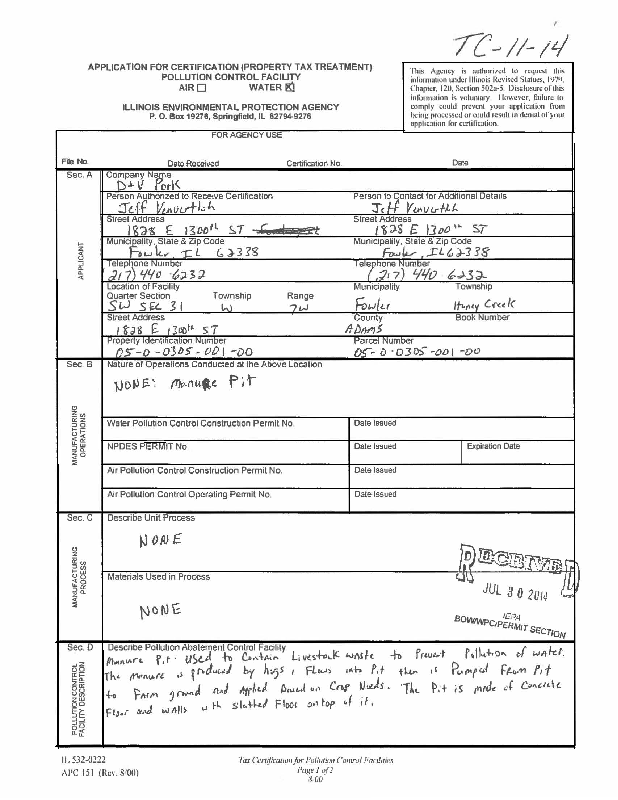 TC-11-14
APPLICATION FOR CERTIFICATION (PROPERTY TAX TREATMENT)
POLLUTION CONTROL FACILITY
AIR ☐ WATER ☒
ILLINOIS ENVIRONMENTAL PROTECTION AGENCY
P. O. Box 19276, Springfield, IL 62794-9276
This Agency is authorized to request this
information under Illinois Revised Statues, 1979,
Chapter, 120, Section 502a-5. Disclosure of this
information is voluntary. However, failure to
comply could prevent your application from
being processed or could result in denial of your
application for certification.
FOR AGENCY USE
File No. Date Received Certification No. Date
Sec. A
APPLICANT
Company Name
D+V Pork
Person Authorized to Receive Certification Person to Contact for Additional Details
Jeff Venvertloh Jeff Venvertloh
Street Address Street Address
1828 E 1300th ST 1828 E 1300th ST
Municipality, State & Zip Code Municipality, State & Zip Code
Fowler, IL 62338 Fowler, IL 62338
Telephone Number Telephone Number
217) 440-6232 (217) 440 6232
Location of Facility Municipality Township
Quarter Section Township Range
SW SEC 31 W 7W Fowler Honey Creek
Street Address County Book Number
1828 E 1300th ST ADAMS
Property Identification Number Parcel Number
05-0-0305-001-00 05-0-0305-001-00
Sec. B
MANUFACTURING OPERATIONS
Nature of Operations Conducted at the Above Location
NONE: Manure Pit
Water Pollution Control Construction Permit No. Date Issued
NPDES PERMIT No Date Issued Expiration Date
Air Pollution Control Construction Permit No. Date Issued
Air Pollution Control Operating Permit No. Date Issued
Sec. C
MANUFACTURING PROCESS
Describe Unit Process
NONE
Materials Used in Process
NONE
RECEIVED
JUL 30 2014
IEPA
BOW/WPC/PERMIT SECTION
Sec. D
POLLUTION CONTROL FACILITY DESCRIPTION
Describe Pollution Abatement Control Facility
Manure Pit. USED to Contain Livestock waste to Prevent Pollution of water.
The manure is produced by hogs, Flows into Pit then is Pumped From Pit
to Farm ground and Applied Based on Crop Needs. The Pit is made of Concrete
Floor and walls with slatted Floor on top of it.
IL 532-0222
APC 151 (Rev. 8/00)
Tax Certification for Pollution Control Facilities
Page 1 of 2
8-00